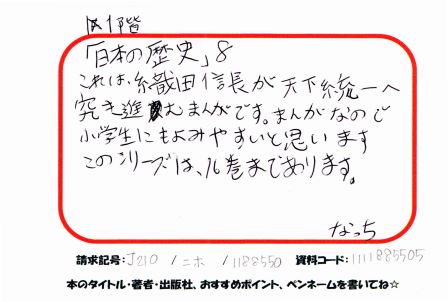 1階
「日本の歴史」8
これは、織田信長が天下統一へ
突き進むまんがです。まんがなので
小学生にもよみやすいと思います
このシリーズは、16巻まであります。
なっち
請求記号：J210 /ニホ /1188550 資料コード：1111885505
本のタイトル・著者・出版社、おすすめポイント、ペンネームを書いてね☆